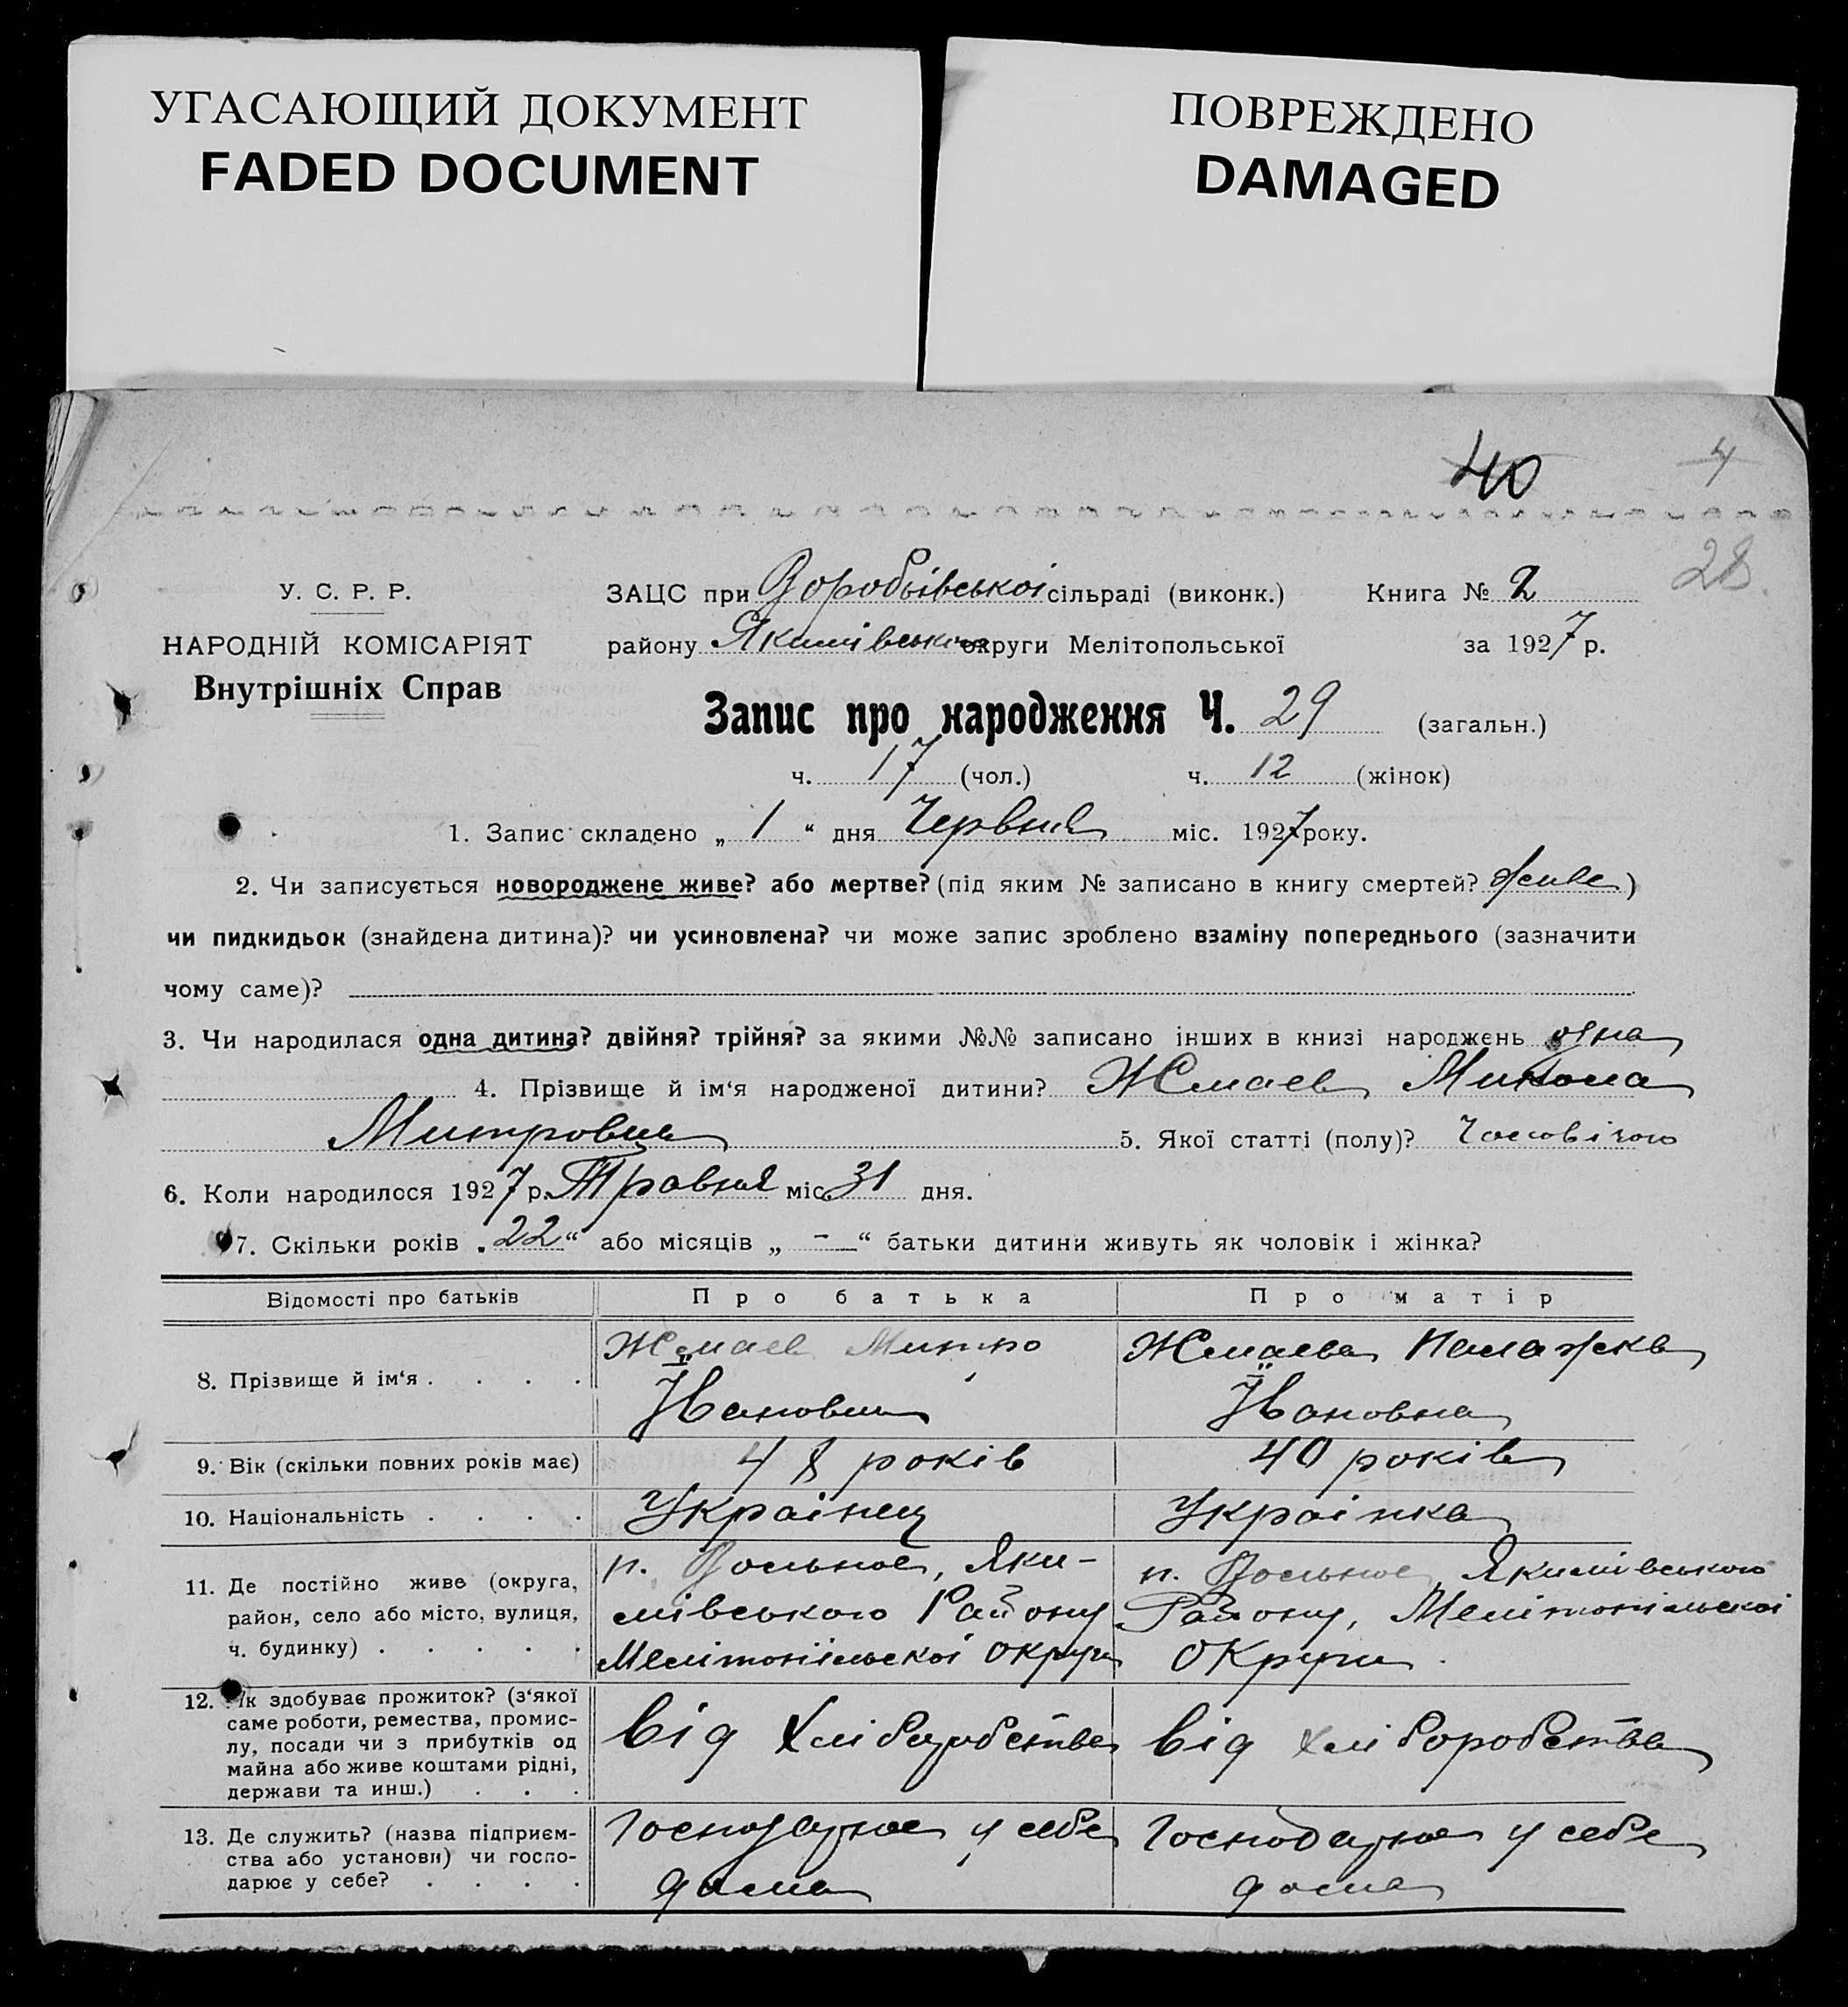 УГАСАЮЩИЙ ДОКУМЕНТ
FADED DOCUMENT
ПОВРЕЖДЕНО
DAMAGED
40
4
28
У. С. Р. Р.
НАРОДНІЙ КОМІСАРІЯТ
Внутрішніх Справ
ЗАЦС при Воробьівськоі сільраді (виконк.) Книга № 2
району Якимівського округи Мелітопольської за 1927 р.
Запис про народження Ч. 29 (загальн.)
ч. 17 (чол.) ч. 12 (жінок)
1. Запис складено „ 1 “ дня Червня міс. 1927 року.
2. Чи записується новороджене живе? або мертве? (під яким № записано в книгу смертей? живе )
чи пидкидьок (знайдена дитина)? чи усиновлена? чи може запис зроблено взаміну попереднього (зазначити
чому саме)?
3. Чи народилася одна дитина? двійня? трійня? за якими №№ записано інших в книзі народжень одна
4. Прізвище й ім‘я народженої дитини? Жмаев Микола
Митрович 5. Якої статті (полу)? Чоловічою
6. Коли народилося 1927 р. Травня міс. 31 дня.
7. Скільки років „ 22 “ або місяців „ - “ батьки дитини живуть як чоловік і жінка?
Відомості про батьків Про батька Про матір
8. Прізвище й ім‘я . . . . Жмаев Митро Іванович Жмаева Палажка Івановна
9. Вік (скільки повних років має) 48 років 40 років
10. Національність . . . . Украінец Украінка
11. Де постійно живе (округа,
район, село або місто, вулиця,
ч. будинку) . . . . .
п. Вольное, Яки-
мівського Району
Мелітопільскоі Округи
п. Вольное Якимівського
Району, Мелітопільскоі
Округи
12. Як здобуває прожиток? (з‘якої
саме роботи, ремества, промис-
лу, посади чи з прибутків од
майна або живе коштами рідні,
держави та инш.) . . .
від хліборобства від хліборобства
13. Де служить? (назва підприєм-
ства або установи) чи госпо-
дарює у себе? . . . .
Господарює у себе
дома
Господарює у себе
дома